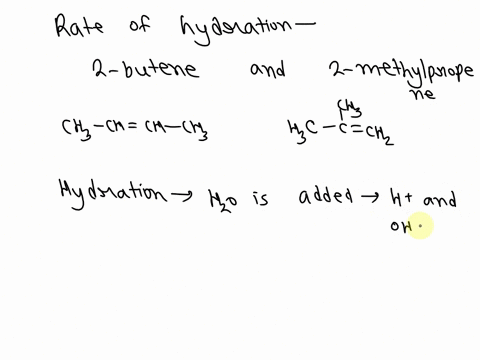 Rate of hydration—
2-butene and 2-methylprope
ne
CH3-CH=CH-CH3
CH3
H3C-C=CH2
Hydration → H2O is added → H+ and
OH